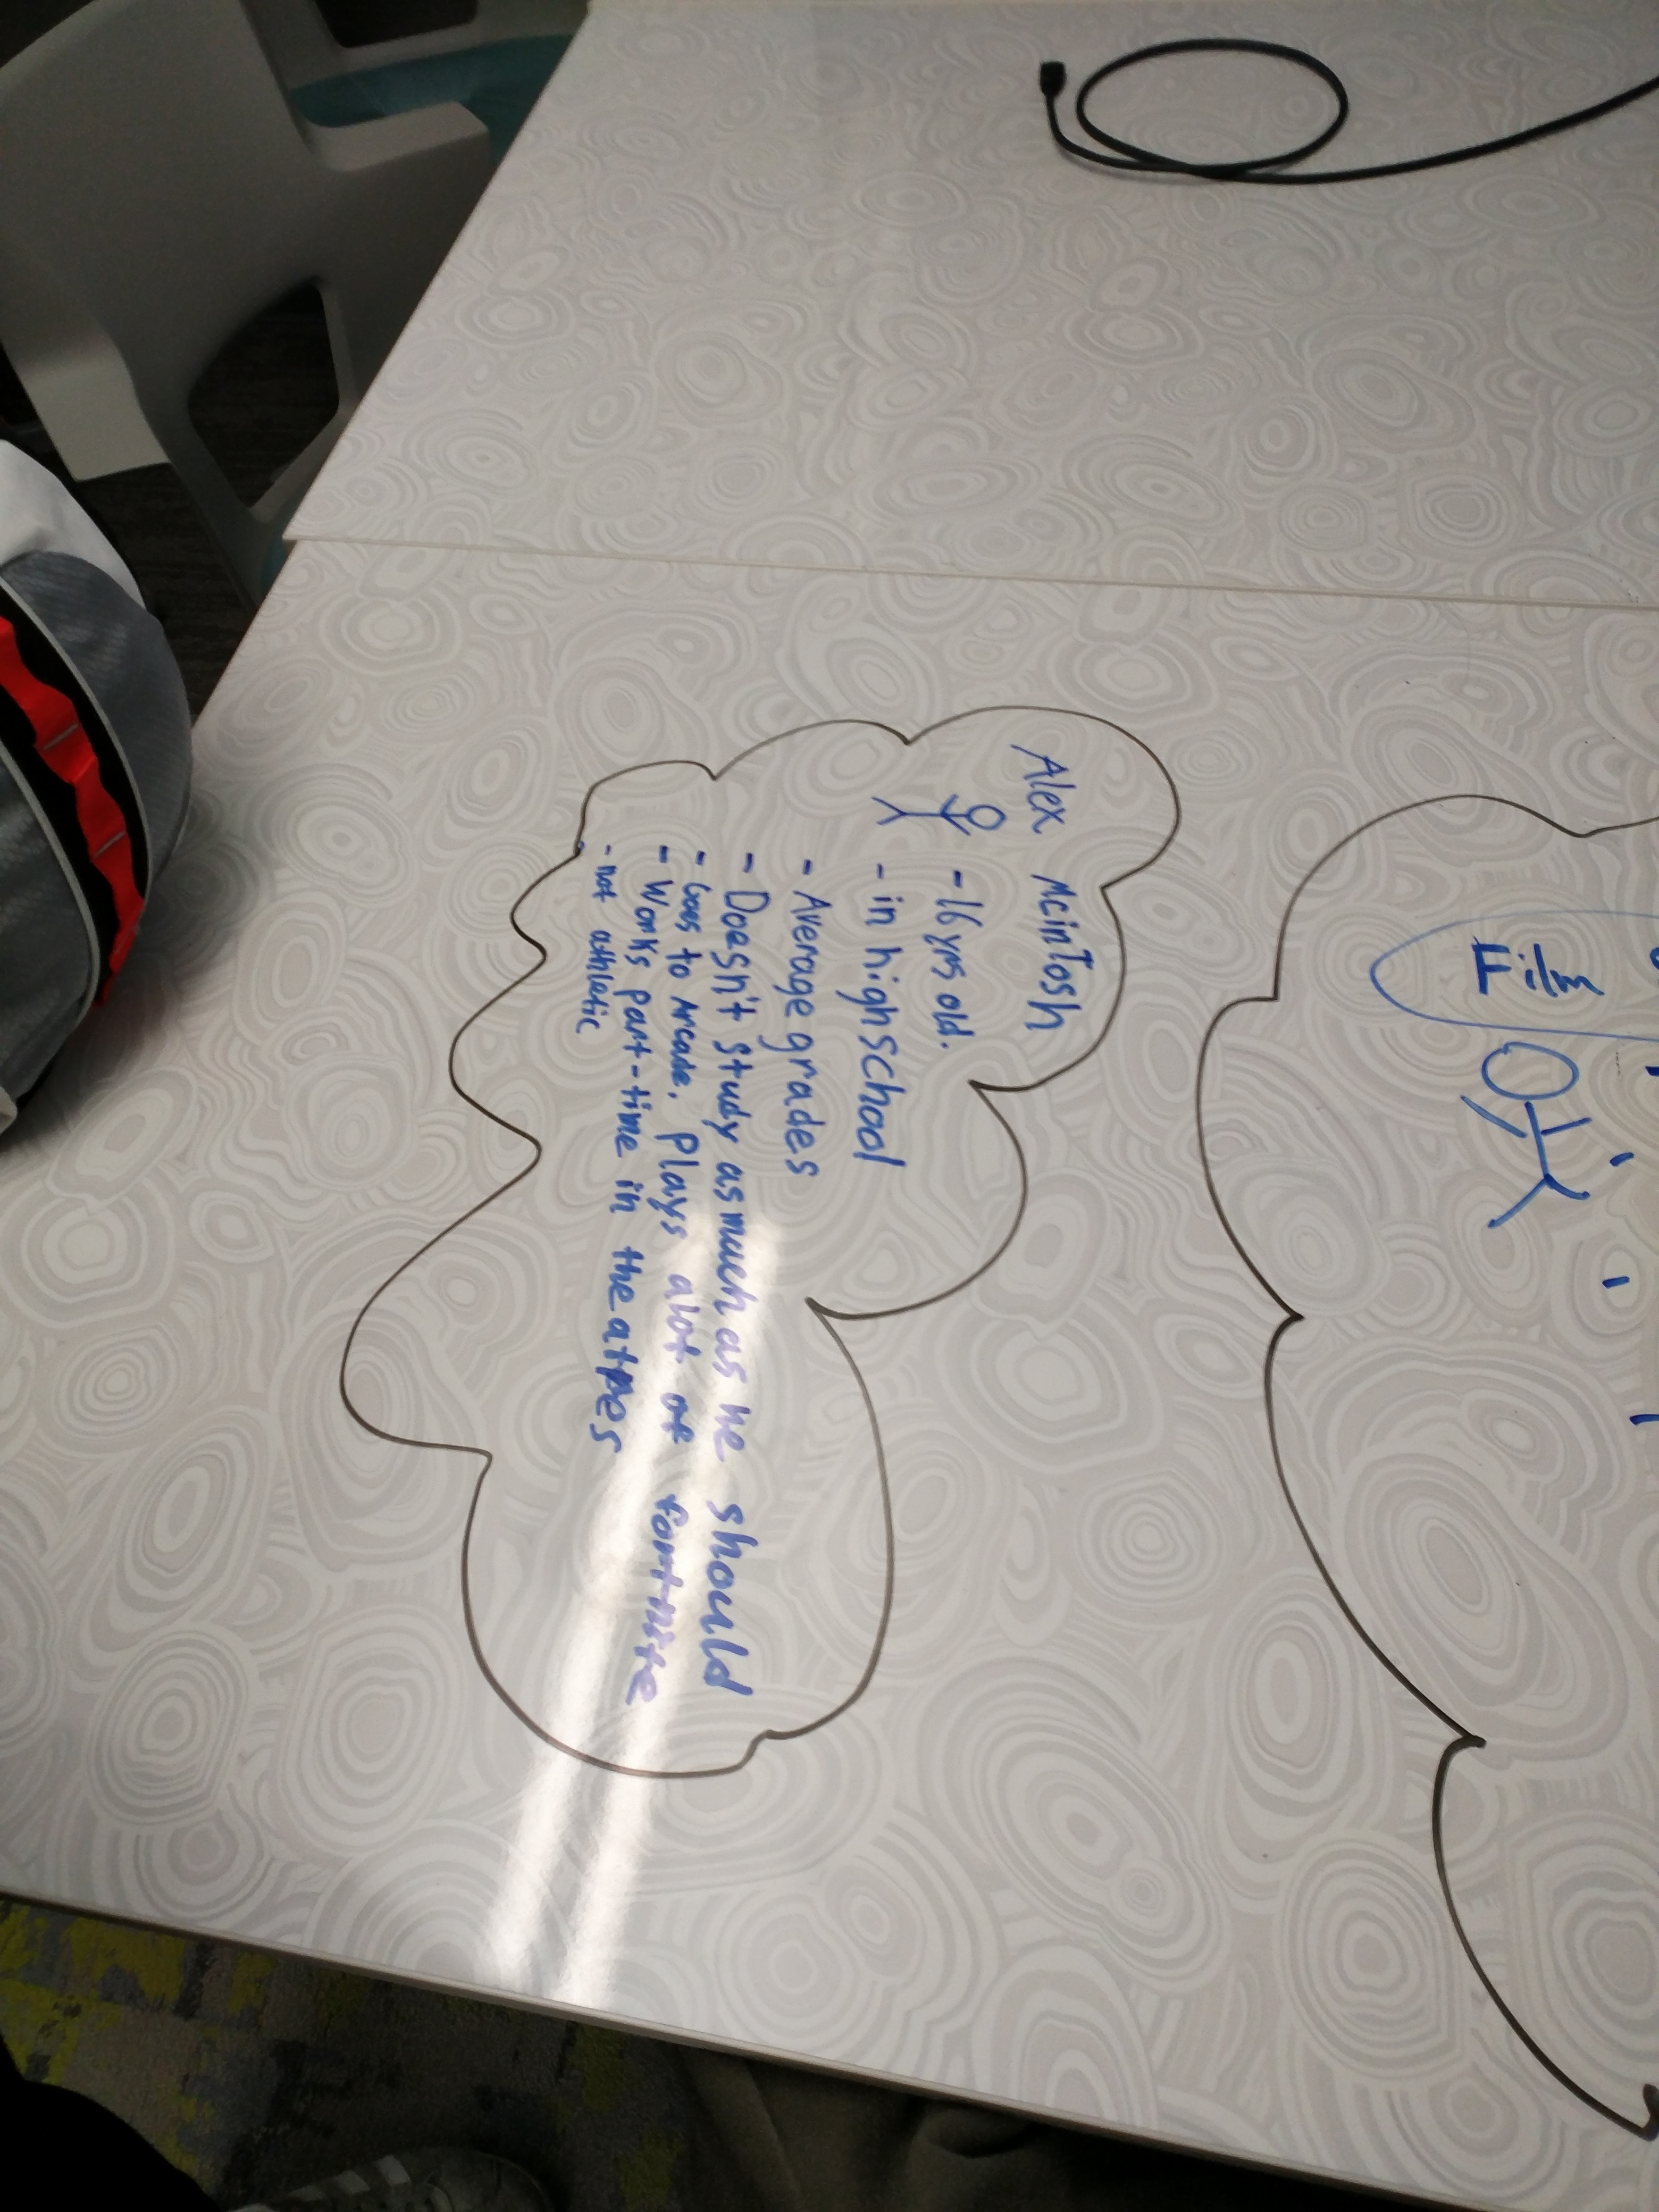 Film
Alex McinTosh
- 16 yrs old.
- in highschool
- Average grades
- Doesn't study as much as he should
- Goes to Arcade. Plays alot of fortnite
- Works part-time in theatres
- not athletic